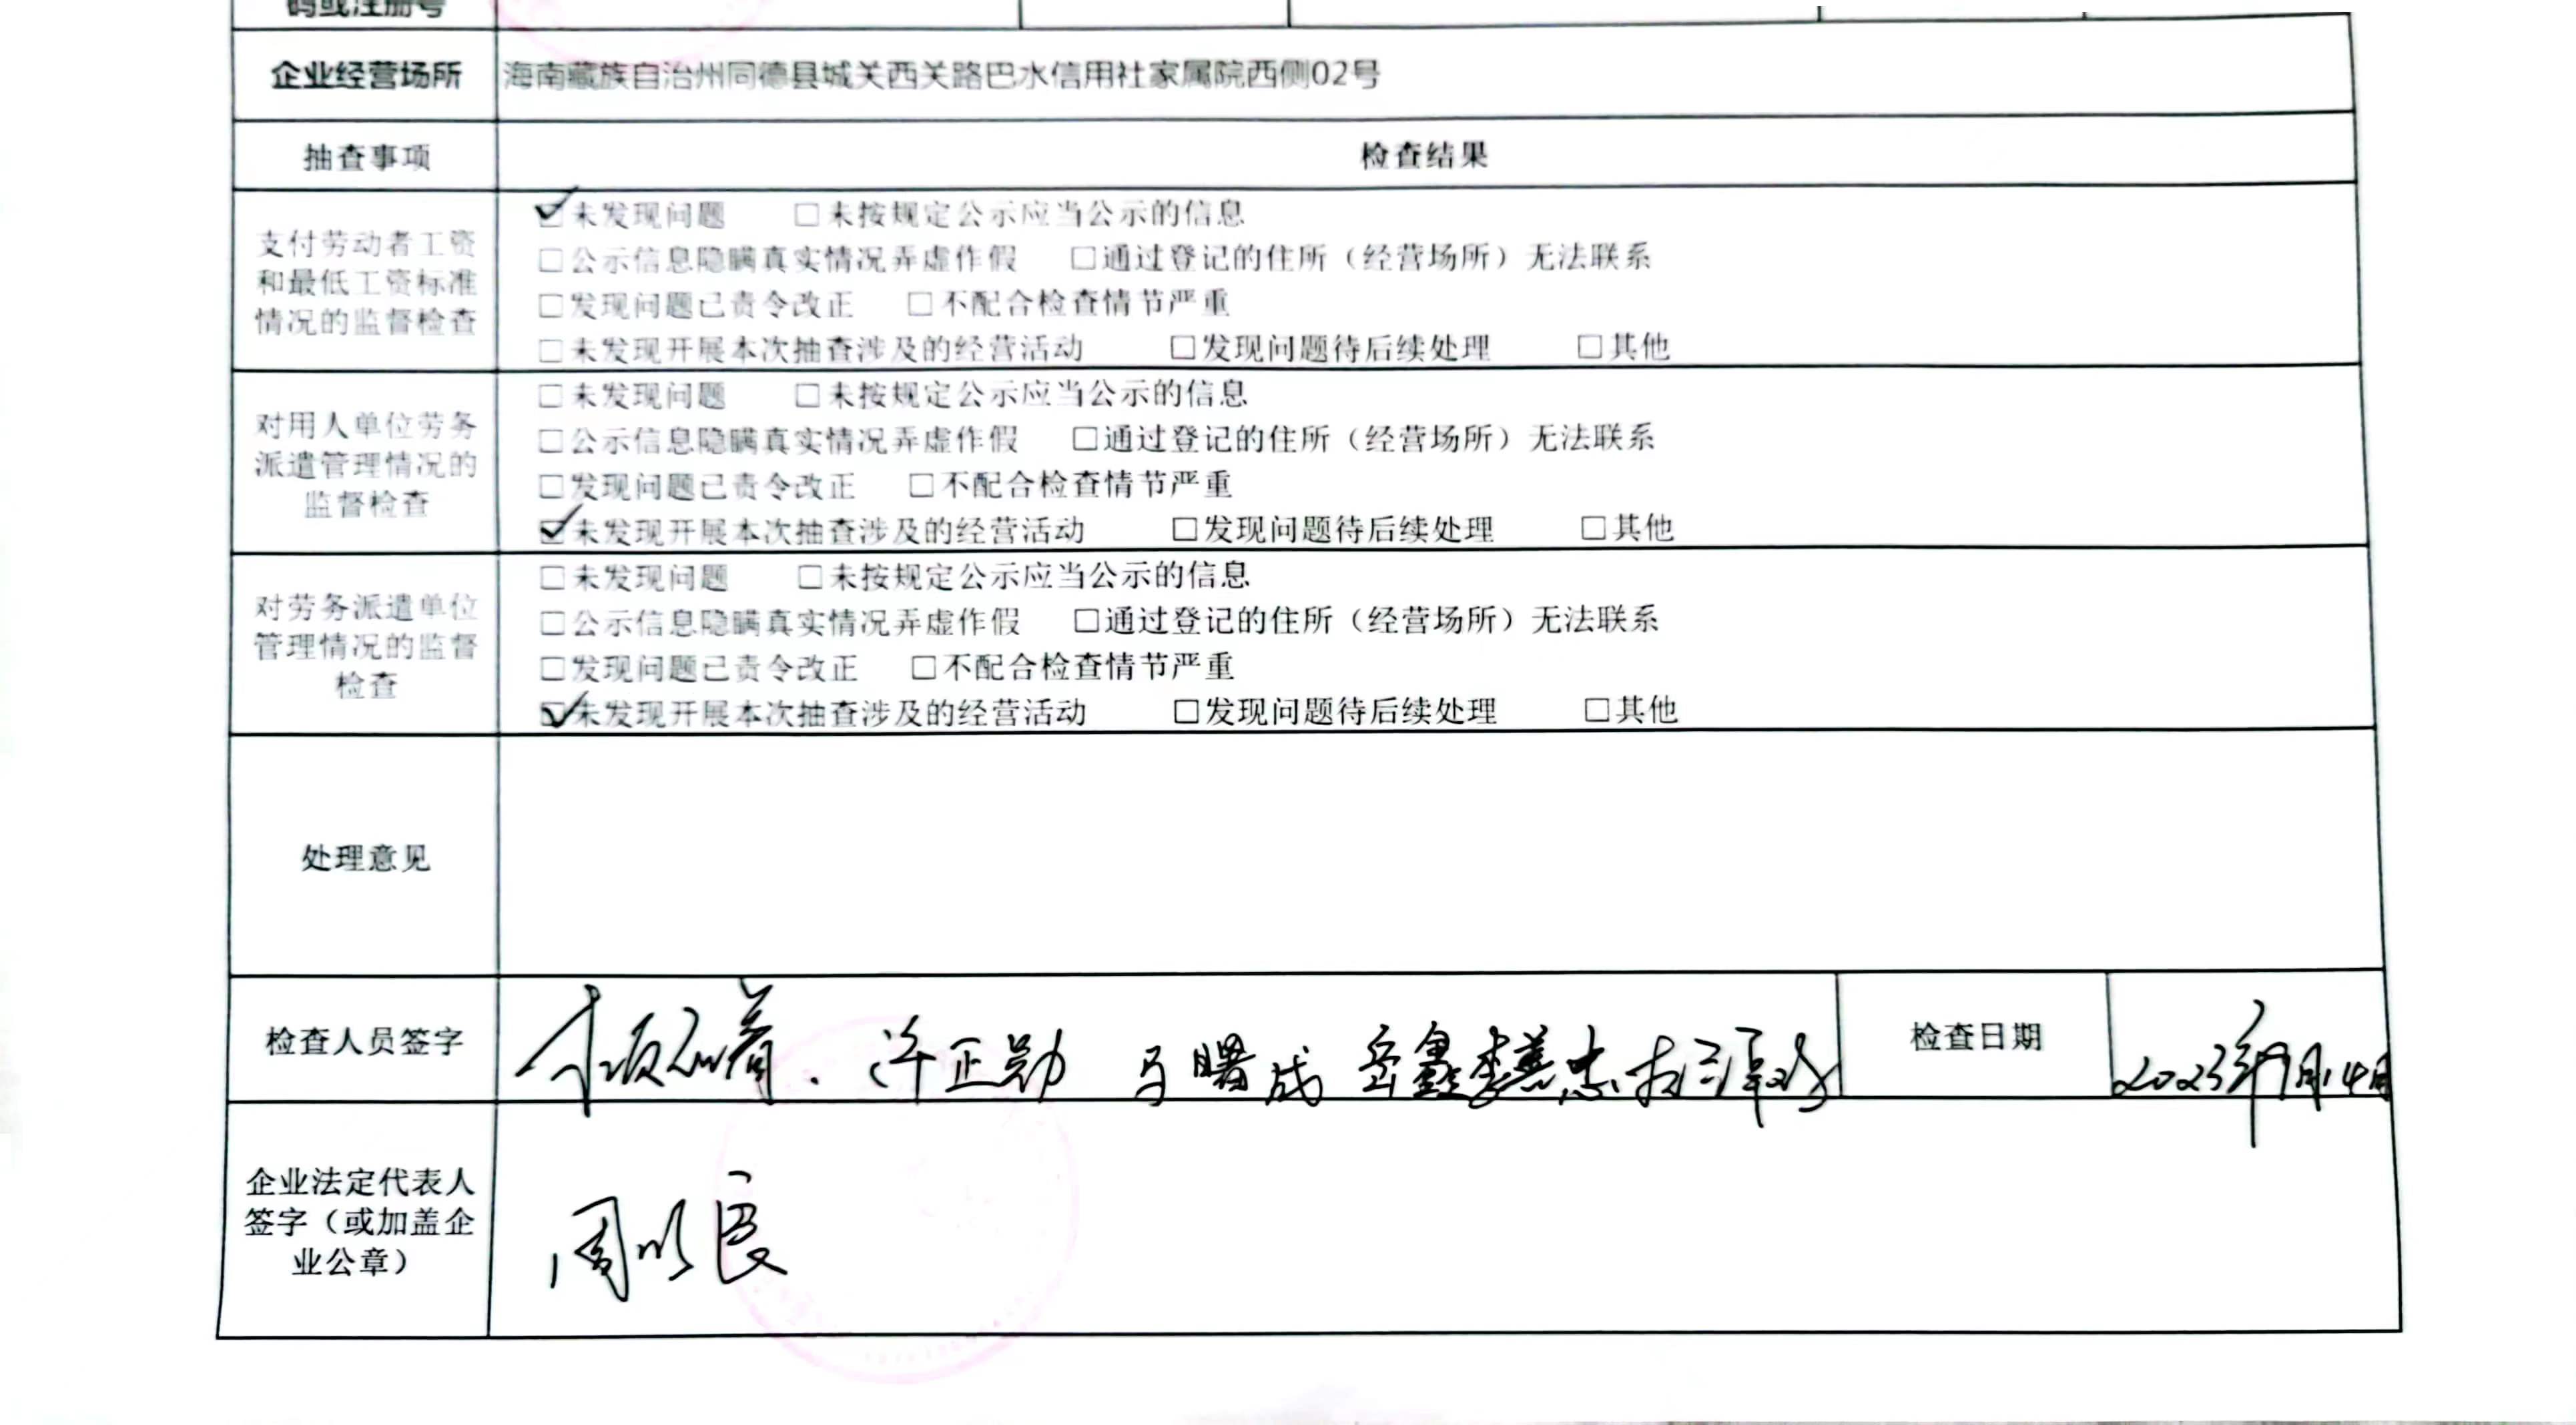 码或注册号
企业经营场所 海南藏族自治州同德县城关西关路巴水信用社家属院西侧02号
抽查事项 检查结果
支付劳动者工资和最低工资标准情况的监督检查
☑未发现问题 □未按规定公示应当公示的信息
□公示信息隐瞒真实情况弄虚作假 □通过登记的住所（经营场所）无法联系
□发现问题已责令改正 □不配合检查情节严重
□未发现开展本次抽查涉及的经营活动 □发现问题待后续处理 □其他
对用人单位劳务派遣管理情况的监督检查
□未发现问题 □未按规定公示应当公示的信息
□公示信息隐瞒真实情况弄虚作假 □通过登记的住所（经营场所）无法联系
□发现问题已责令改正 □不配合检查情节严重
☑未发现开展本次抽查涉及的经营活动 □发现问题待后续处理 □其他
对劳务派遣单位管理情况的监督检查
□未发现问题 □未按规定公示应当公示的信息
□公示信息隐瞒真实情况弄虚作假 □通过登记的住所（经营场所）无法联系
□发现问题已责令改正 □不配合检查情节严重
☑未发现开展本次抽查涉及的经营活动 □发现问题待后续处理 □其他
处理意见
检查人员签字 许正勋 马曙成 李善忠 检查日期 2023年9月14日
企业法定代表人
签字（或加盖企
业公章） 周以良